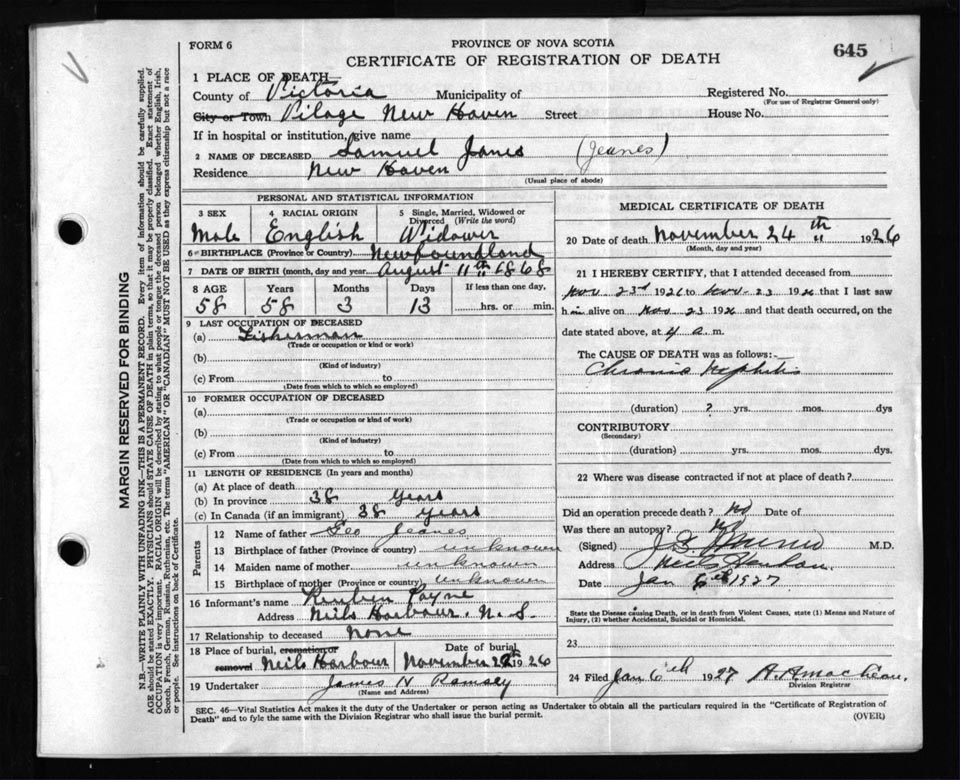 FORM 6
PROVINCE OF NOVA SCOTIA
645
CERTIFICATE OF REGISTRATION OF DEATH
1 PLACE OF DEATH—
County of Victoria Municipality of Registered No.
(For use of Registrar General only)
City or Town Vilage New Haven Street House No.
If in hospital or institution, give name
2 NAME OF DECEASED Samuel Janes (Jeanes)
Residence New Haven
(Usual place of abode)
MARGIN RESERVED FOR BINDING
N.B.—WRITE PLAINLY WITH UNFADING INK—THIS IS A PERMANENT RECORD. Every item of information should be carefully supplied.
AGE should be stated EXACTLY. PHYSICIANS should STATE CAUSE OF DEATH in plain terms, so that it may be properly classified. Exact statement of
OCCUPATION is very important. RACIAL ORIGIN will be described by stating to what people or tongue the deceased person belonged whether English, Irish,
Scotch, French, German, Russian, Ruthenian, etc. The terms "AMERICAN" OR "CANADIAN" MUST NOT BE USED as they express citizenship but not a race
or people. See instructions on back of Certificate.
PERSONAL AND STATISTICAL INFORMATION
3 SEX 4 RACIAL ORIGIN 5 Single, Married, Widowed or
Divorced (Write the word)
Male English Widower
6 BIRTHPLACE (Province or Country) Newfoundland
7 DATE OF BIRTH (month, day and year) August 11th 1868
8 AGE Years Months Days If less than one day,
58 58 3 13 hrs. or min.
9 LAST OCCUPATION OF DECEASED
(a) Fisherman
(Trade or occupation or kind or work)
(b)
(Kind of industry)
(c) From to
(Date from which to which so employed)
10 FORMER OCCUPATION OF DECEASED
(a)
(Trade or occupation or kind of work)
(b)
(Kind of industry)
(c) From to
(Date from which to which so employed)
11 LENGTH OF RESIDENCE (In years and months)
(a) At place of death
(b) In province 38 years
(c) In Canada (if an immigrant) 38 years
Parents
12 Name of father Geo Jeanes
13 Birthplace of father (Province or country) unknown
14 Maiden name of mother unknown
15 Birthplace of mother (Province or country) unknown
16 Informant's name Reuben Payne
Address Neils Harbour. N.S.
17 Relationship to deceased None
18 Place of burial, cremation or Date of burial
removal Neils Harbour November 1926
19 Undertaker James N Ramsey
(Name and Address)
MEDICAL CERTIFICATE OF DEATH
20 Date of death November 24th 1926
(Month, day and year)
21 I HEREBY CERTIFY, that I attended deceased from
Nov 23rd 1926 to Nov. 23 1926 that I last saw
him alive on Nov 23 1926 and that death occurred, on the
date stated above, at 4 a. m.
The CAUSE OF DEATH was as follows:—
Chronic Nephritis
(duration) ? yrs. mos. dys
CONTRIBUTORY
(Secondary)
(duration) yrs. mos. dys.
22 Where was disease contracted if not at place of death?
Did an operation precede death? No Date of
Was there an autopsy? No
(Signed) M.D.
Address Neils Harbour.
Date Jan 6th 1927
State the Disease causing Death, or in death from Violent Causes, state (1) Means and Nature of
Injury, (2) whether Accidental, Suicidal or Homicidal.
23
24 Filed Jan 6th 1927
Division Registrar
SEC. 46—Vital Statistics Act makes it the duty of the Undertaker or person acting as Undertaker to obtain all the particulars required in the "Certificate of Registration of
Death" and to fyle the same with the Division Registrar who shall issue the burial permit.
(OVER)